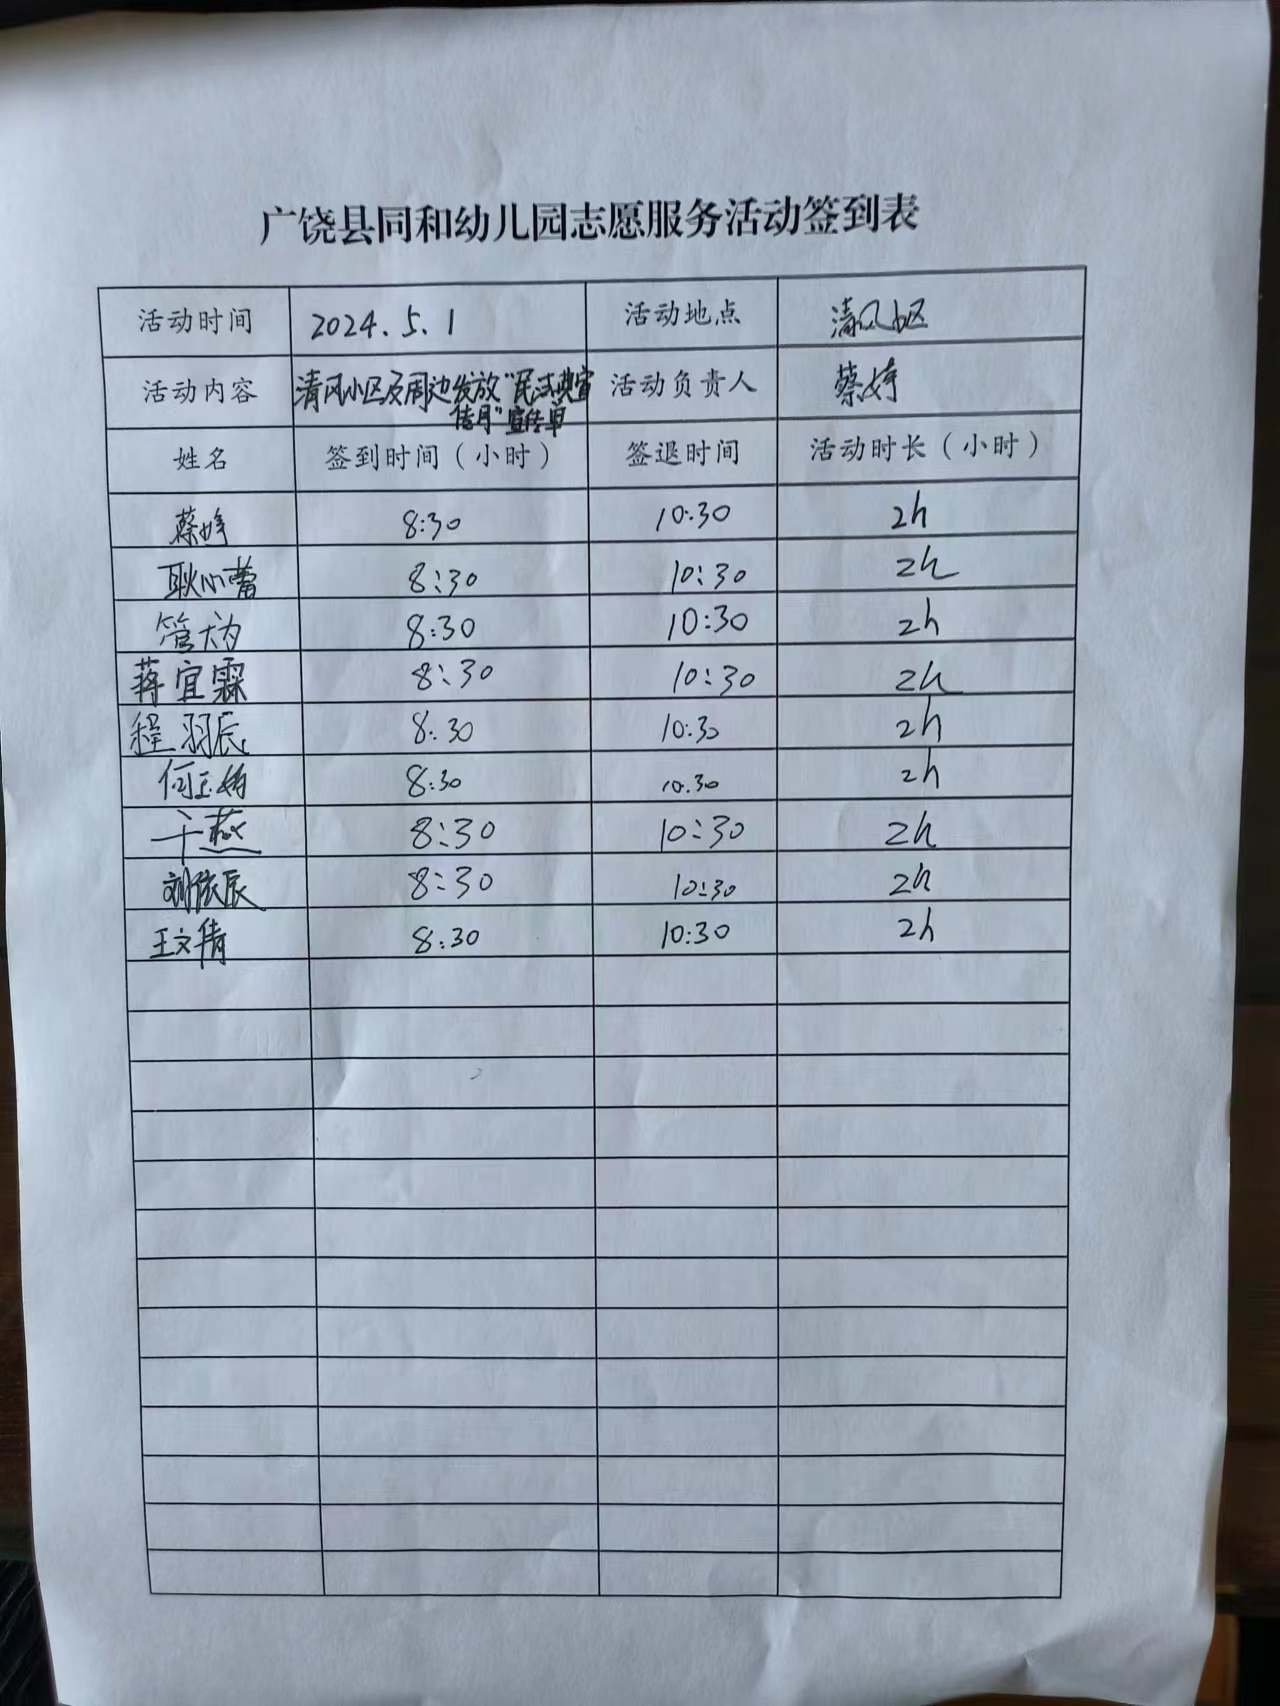 广饶县同和幼儿园志愿服务活动签到表
活动时间 2024.5.1 活动地点 清风小区
活动内容 清风小区及周边发放“民法典宣传月”宣传单 活动负责人 蔡婷
姓名 签到时间（小时） 签退时间 活动时长（小时）
蔡婷 8:30 10:30 2h
耿心蕾 8:30 10:30 2h
8:30 10:30 2h
蒋宜霖 8:30 10:30 2h
程羽辰 8:30 10:30 2h
何玉娟 8:30 10:30 2h
于燕 8:30 10:30 2h
刘依辰 8:30 10:30 2h
王文倩 8:30 10:30 2h